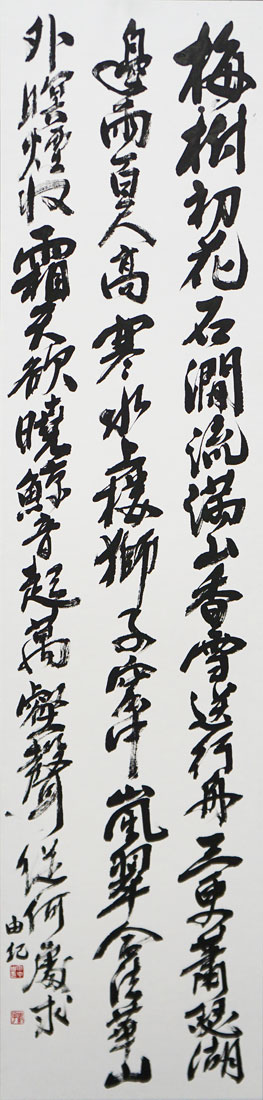 梅樹初花石澗流滿山香雪送行舟三更蕭瑟湖
邊雨百尺高寒水上樓獅子窟中嵐翠合法華山
外暝煙收霜天欲曉鯨音起萬壑聲從何處求
由紀